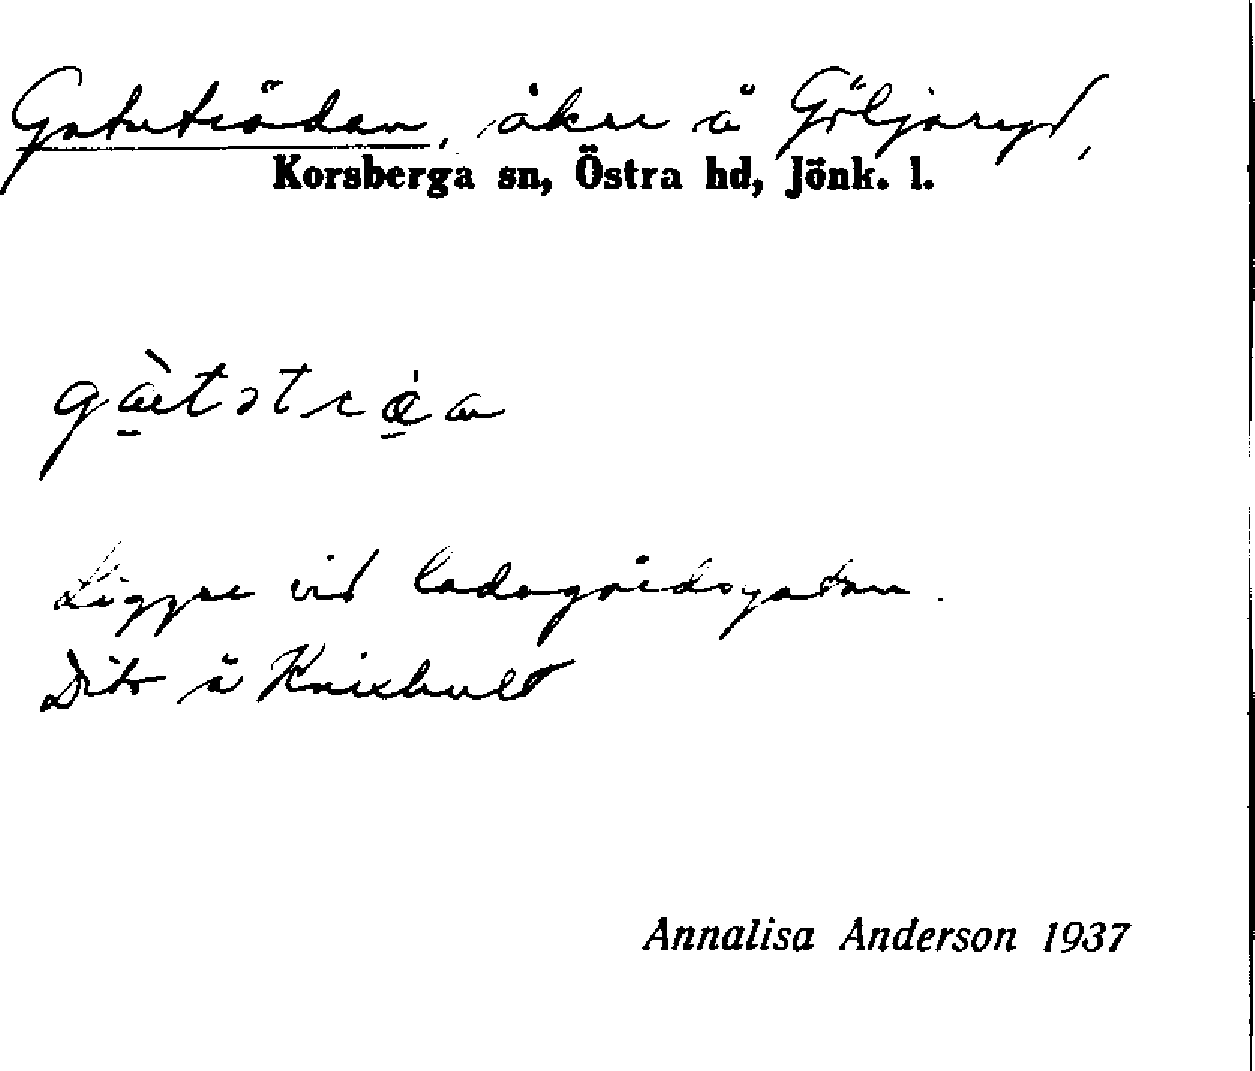 Gatuträdan, åker å Göljaryd,
Korsberga sn, Östra hd, Jönk. l.
Ligger vid ladugårdsgatan.
Dito å Knixhult
Annalisa Anderson 1937